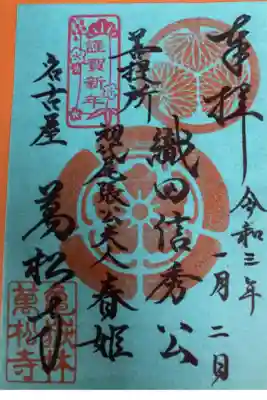 奉拝
令和三年
一月二日
織田信秀公
菩提所
初代尾張公夫人春姫
謹賀新年
名古屋
萬松寺
亀嶽林
萬松寺